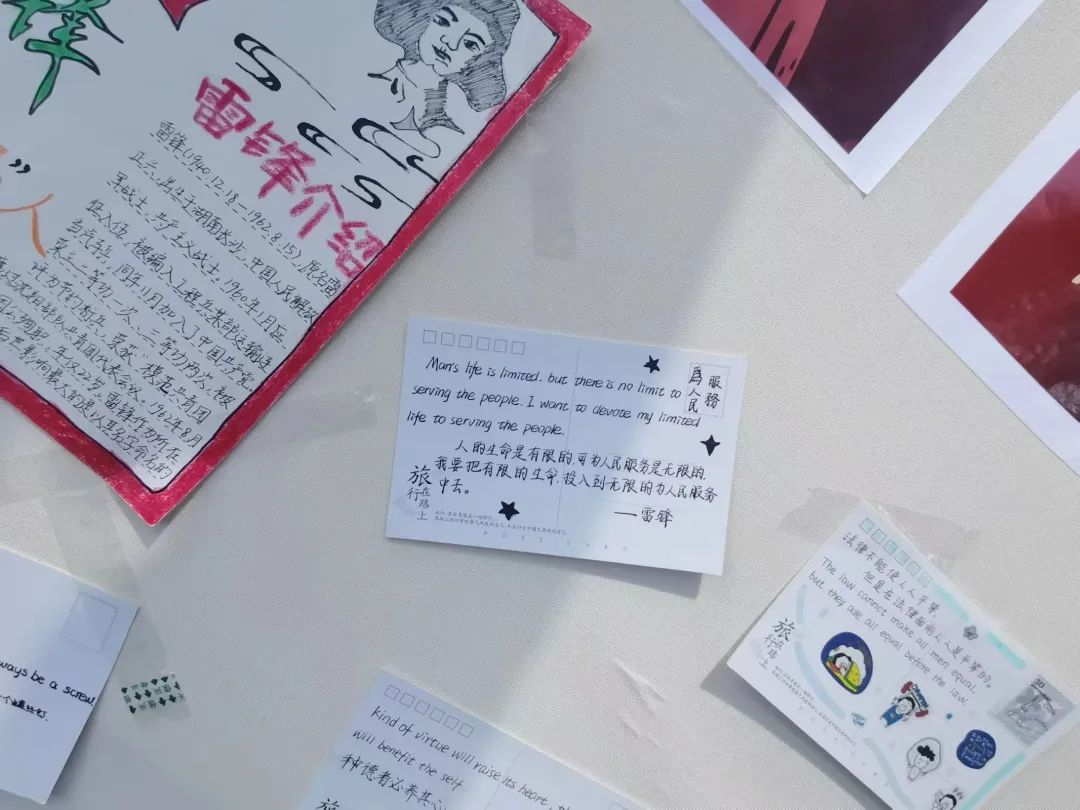 锋
雷锋介绍
雷锋(1940.12.18—1962.8.15),原名雷
正兴,出生于湖南长沙,中国人民解放
军战士,共产主义战士。1960年1月应
征入伍,被编入工程兵某部运输连
当汽车兵,同年11月加入了中国共产党。
荣立二等功一次,三等功两次,被
团
1962年8月
年仅22岁。雷锋作为所在
以其名字命名的
”
人
Man's life is limited. but there is no limit to
serving the people. I want to devote my limited
life to serving the people.
為人民
服務
人的生命是有限的.可为人民服务是无限的.
我要把有限的生命.投入到无限的为人民服务
中去。
——雷锋
旅
行在
路
上
POSTCARD
法律不能使人人平等,
但是在法律面前人人是平等的。
The law cannot make all men equal,
but they are all equal before the law.
旅
行在
路
上
30
ways be a screw.
kind of virtue will raise its heart,
will benefit the self.
种德者必养其心
旅